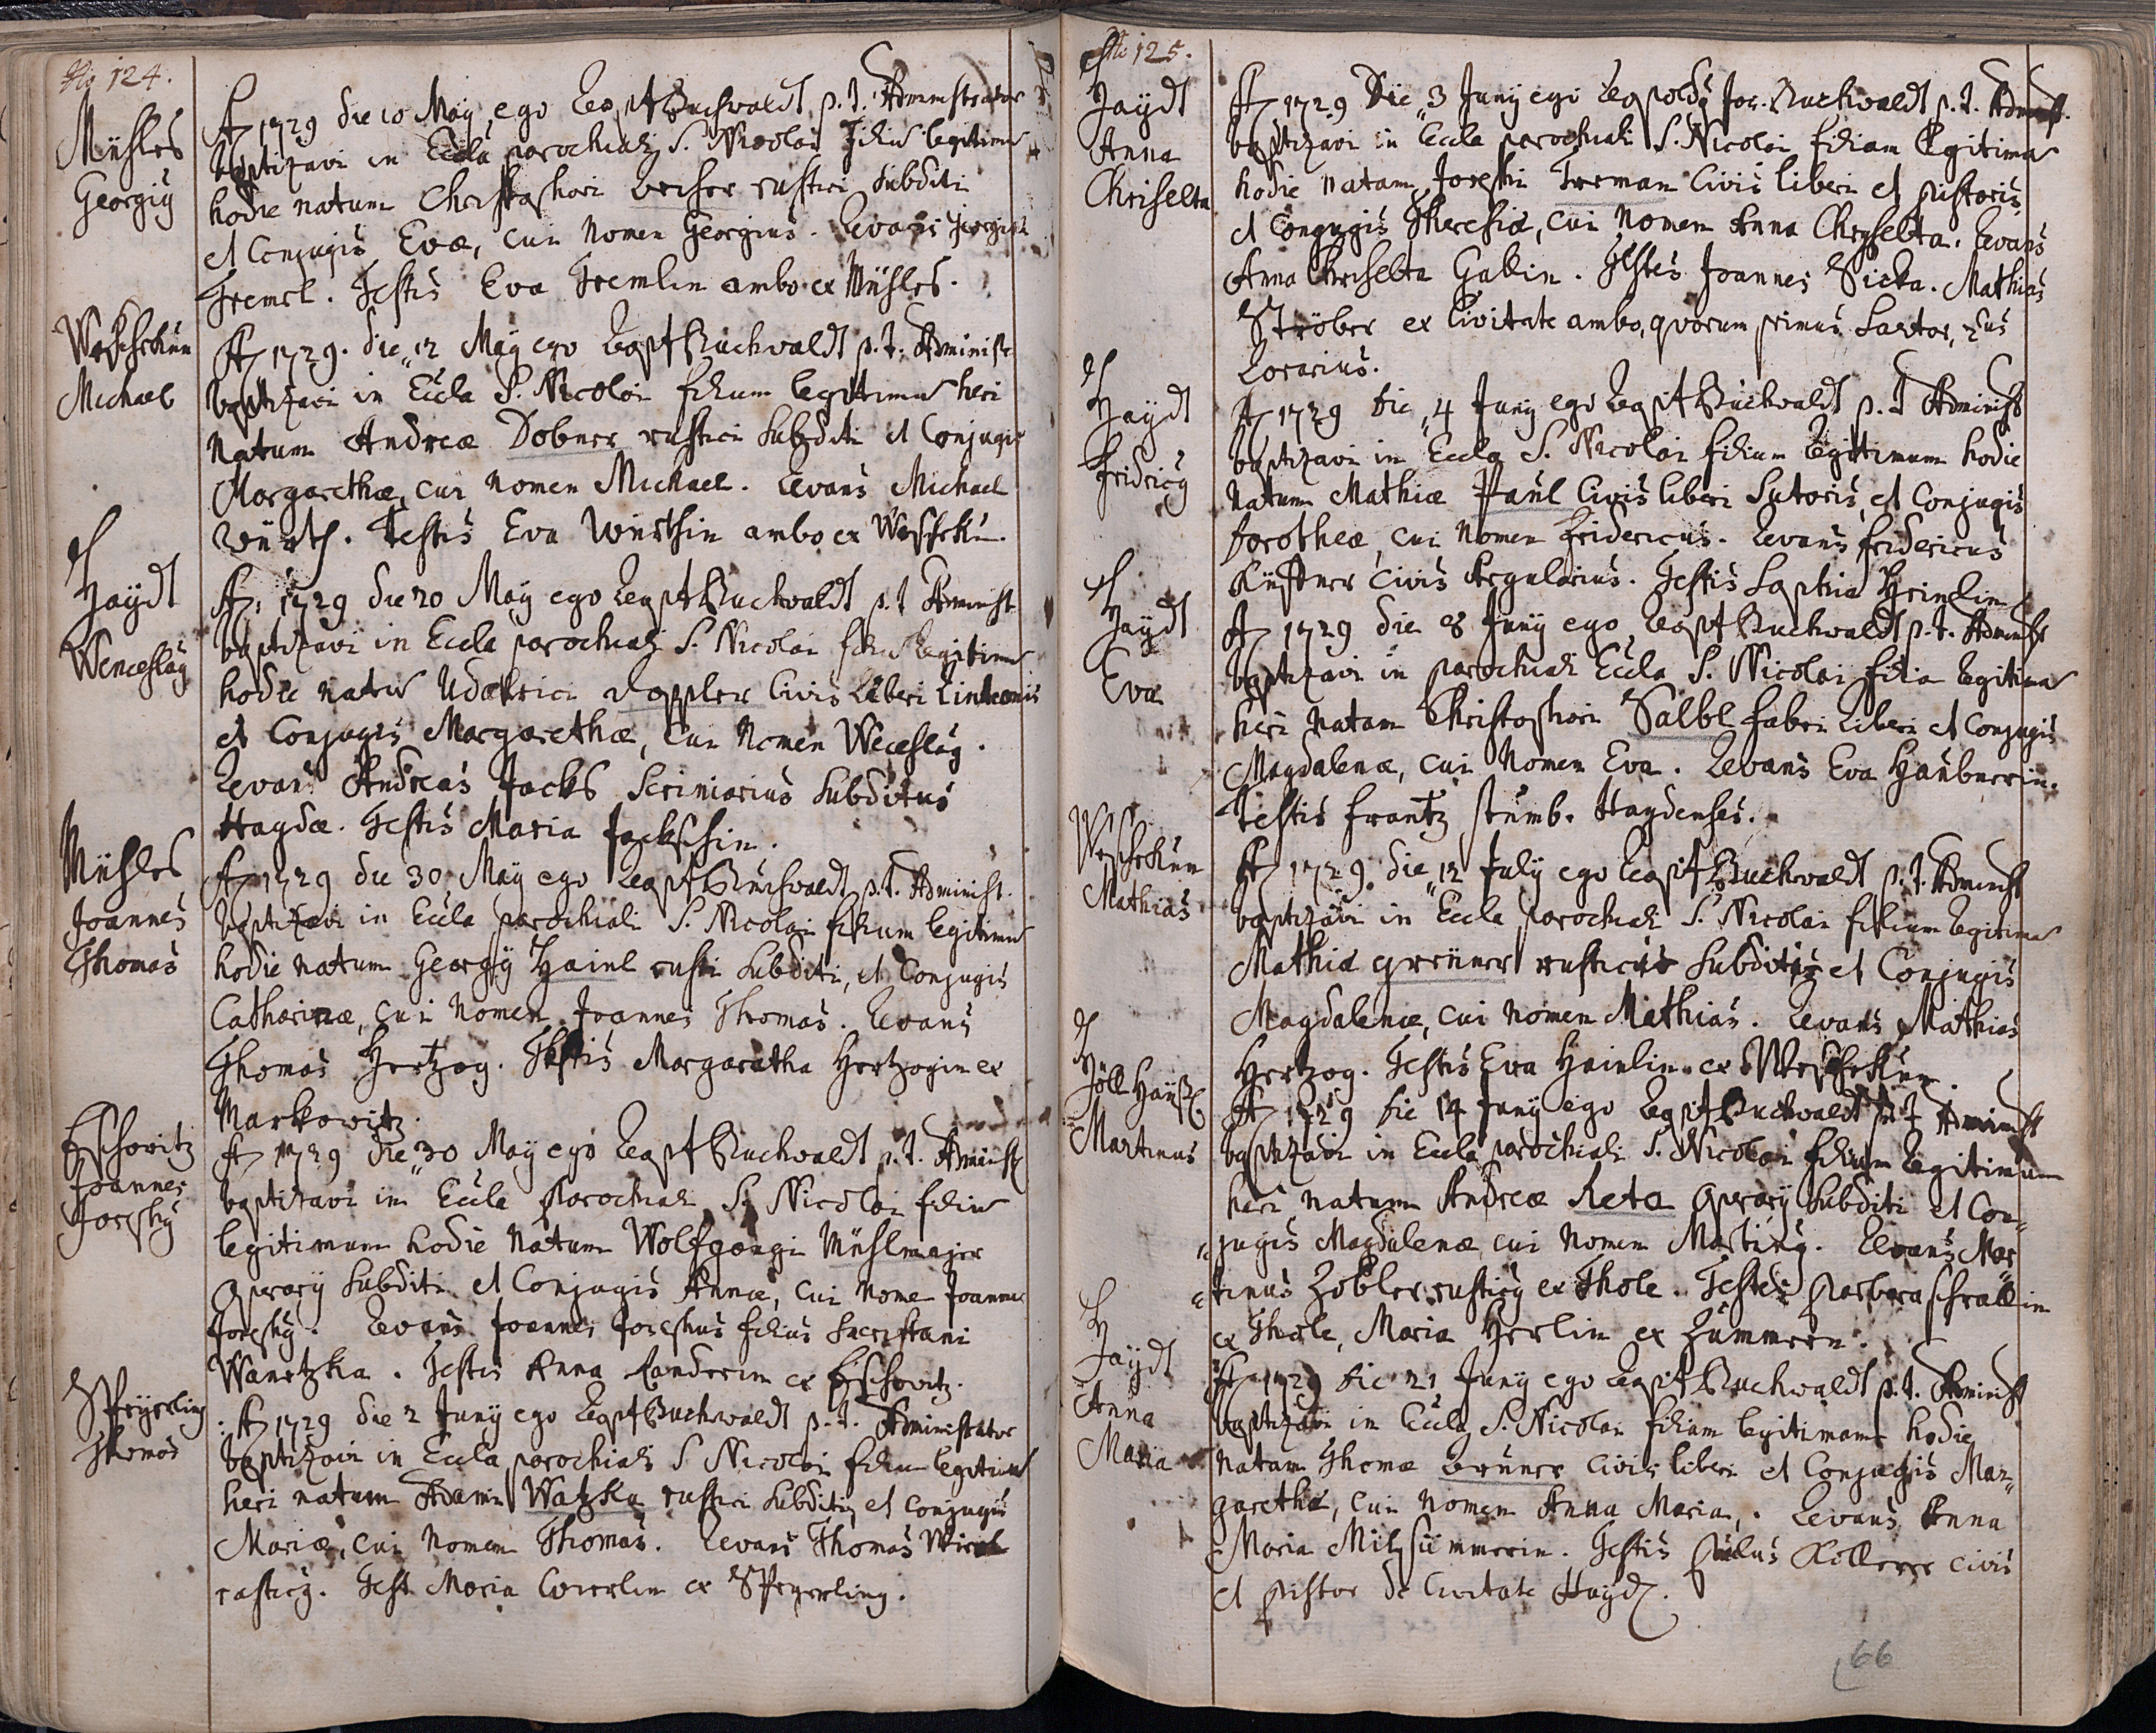 No 124.
Mühles
Georgiy
A 1729 die 10 Maÿ ego Leop: Buchwaldt p. t. Administrator
baptizavi in Eccla parochiali S. Nicolai Filiu legitimu
hodie natum Christophori rustici subditi
et Conjugis Evæ, cui Nomen Georgius. Levans Georgius
Fremel. Testis Eva Fremlin ambo ex Mühles.
Weschekun
Michael
A 1729. die 12 Maÿ ego Leop: Buchwaldt p. t. Administ
baptizavi in Eccla S. Nicolai filium legitimu heri
natum Andreæ Dobner rustici subditi et Conjugis
Margarethæ, cui nomen Michael. Levans Michael
Würth. Testis Eva Würthin ambo ex Weschekun.
Haÿdt
Wenceslaÿ
A: 1729 die 20 Maÿ ego Leop: Buchwaldt p. t Administ
baptizavi in Eccla parochiali S. Nicolai filiu legitimu
hodie natu Udalrici Doppler Civis Liberi Linteonis
et Conjugis Margarethæ, cui Nomen Weceslaÿ.
Levans Andreas Jacks Scriniarius Subditus
Haydæ. Testis Maria Jackschin.
Mühles
Joannes
Thomas
A 1729 die 30 Maÿ ego Leop: Buchwaldt p. t. Administ.
baptizavi in Eccla parochiali S. Nicolai filium legitimu
hodie natum Georgÿ Hainl rusti subditi, et Conjugis
Catharinæ, cui Nomen Joannes Thomas. Levans
Thomas Hertzog. Testis Margaretha Hertzogin ex
Markowitz.
Eschowitz
Joannes
Josephÿ
A 1729 die 30 Maÿ ego Leop: Buchwaldt p. t. Administ
baptizavi in Eccla Parochiali S. Nicolai filiu
legitimum hodie natum Wolfgangi Mühlmajer
Operarÿ subditi et Conjugis Annæ, cui Nome Joannes
Josephÿ. Levans Joannes Josephus filius Sacristani
Wanetzka. Testis Anna Landerin ex Eschowitz.
Speyerling
Thomas
A 1729 die 2 Junÿ ego Leop: Buchwaldt p. t. Administrator
baptizavi in Eccla parochiali S Nicolai filium legitimu
heri natum Adami Watzka rustici subditi, et conjugis
Mariæ, cui Nomen Thomas. Levans Thomas
rusticÿ. Test Maria ex Speyerling.
No 125.
Haÿdt
Anna
Chriselta
A 1729 Die 3 Junÿ ego Leopoldÿ Jos. Buchwaldt p. t. Administ.
baptizavi in Eccla parochiali S. Nicolai filiam legitima
hodie natam Josephi Terman Civis liberi et pistoris,
et Conjugis Theresiæ, cui Nomen Anna Chryselta. Levans
Anna Chriselta Gablin. Testes Joannes Sicka. Mathias
Ströber ex Civitate ambo, quorum primus Sartor, 2dus
Lorarius.
Haÿdt
Fridricÿ
A 1729 die 4 Junÿ ego Leop: Buchwaldt p. t Administ
baptizavi in Eccla S. Nicolai filium legitimum hodie
natum Mathiæ Paul Civis liberi Sutoris, et Conjugis
Dorotheæ, cui Nomen Fridericus. Levans Fridericus
Küffner Civis Regularius. Testis Sophia Heinlin
Haÿdt
Eva
A 1729 die 8 Junÿ ego Leop: Buchwaldt p. t. Administ
baptizavi in parochiali Eccla S. Nicolai filia legitima
heri natam Christophori Salbl fabri Liberi et Conjugis
Magdalenæ, cui Nomen Eva. Levans Eva Haubnerin.
Testis Frantz Stumb. Haydenses.
Weschekun
Mathias
A 1729. die 12 July ego Leop: Buchwaldt p. t. Administ
baptizavi in Eccla parochiali S. Nicolai filium legitimu
Mathiæ Grüner rusticus subditis et Conjugis
Magdalenæ, cui nomen Mathias. Levans Mathias
Hertzog. Testis Eva Hainlin ex Weschekun.
Höll Hauß
Martinus
A 1729 die 14 Junÿ ego Leop: Buchwaldt p. t Administ
baptizavi in Eccla parochiali S. Nicolai filium legitimum
heri natum Andreæ Reta Operarÿ subditi et Con-
jugis Magdalenæ cui Nomen Martinÿ. Levans Mar
tinus Zobler rusticÿ ex Thole. Testes Barbara Schrallin
ex Thole, Maria Herlin ex Zummern.
Haÿdt
Anna
Maria
A 1729 die 21 Junÿ ego Leop: Buchwaldt p. t. Administ
baptizavi in Eccla S. Nicolai filiam legitimam hodie
natam Thomæ Bruner Civis liberi et Conjugis Mar-
garethæ, cui Nomen Anna Maria. Levans Anna
Maria Milzsümmerin. Testis Paulus Köllerer civis
et pistor de Civitate Haÿd.
66